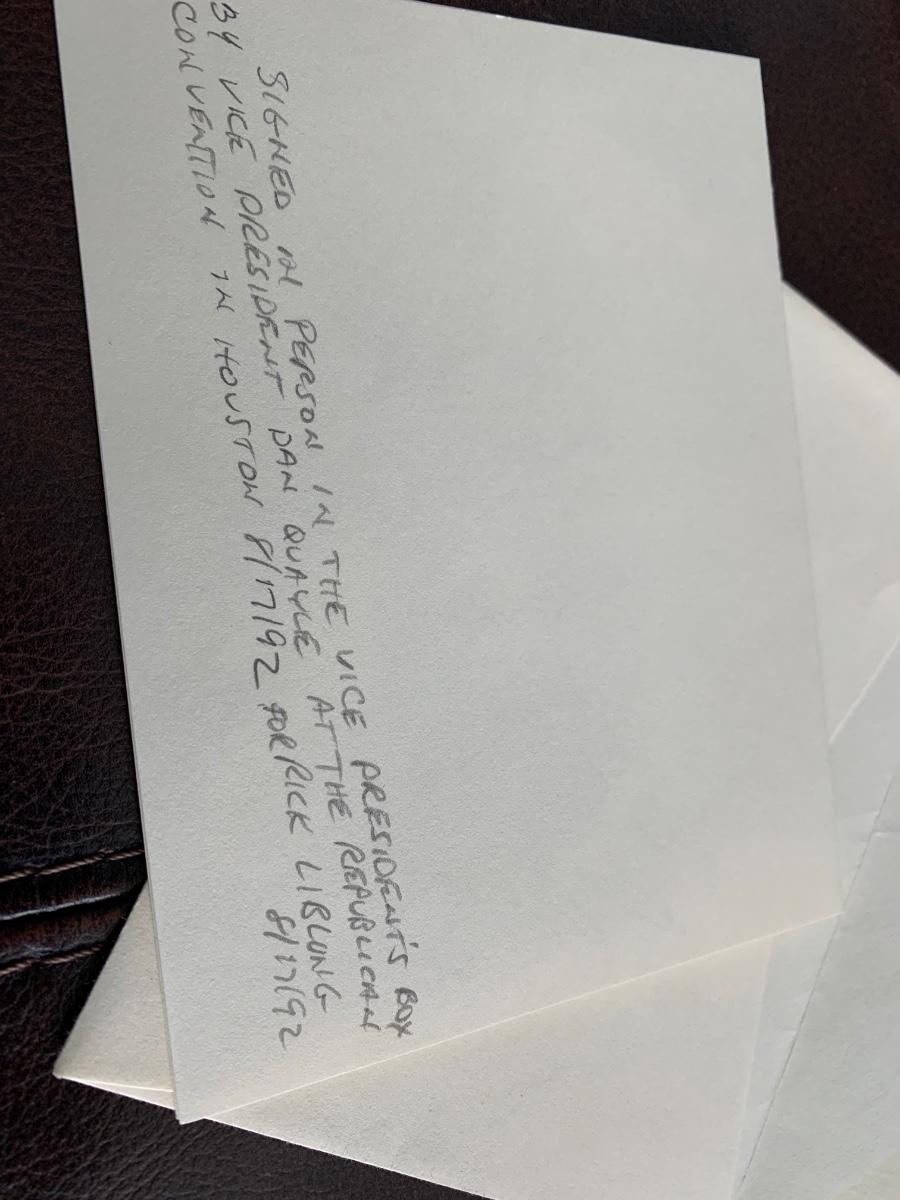 SIGNED IN PERSON IN THE VICE PRESIDENT'S BOX
BY VICE PRESIDENT DAN QUAYLE AT THE REPUBLICAN
CONVENTION IN HOUSTON 8/17/92 FOR RICK LIBLUNG
8/17/92